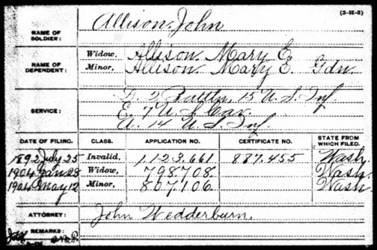 (3-H-3)
NAME OF SOLDIER: Allison, John
NAME OF DEPENDENT:
Widow, Allison, Mary E.
Minor, Allison, Mary E. Gdn.
SERVICE:
15 U.S. Inf
E. 7 U.S. Cav.
A. 14 U.S. Inf.
DATE OF FILING. CLASS. APPLICATION NO. CERTIFICATE NO. STATE FROM WHICH FILED.
1892 July 25 Invalid, 1123,661 887.455 Wash.
1904 Jan 28 Widow, 798708 Wash.
1904 May 12 Minor, 807106 Wash
ATTORNEY: John Wedderburn.
REMARKS: